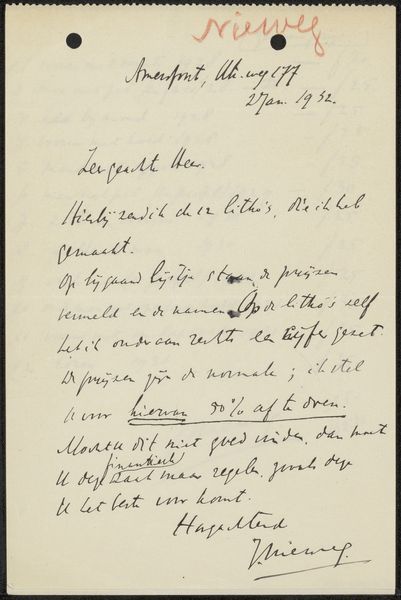 Nieweg
Amersfoort, Utr. weg 177
2 Jan. 1932.
Zeer geachte Heer.
Hierbij zend ik de 12 litho's, die ik heb
gemaakt.
Op bijgaand lijstje staan de prijzen
vermeld en de namen. Op de litho's self
heb ik onder aan rechts een cijfer gezet.
De prijzen zijn de normale; ik stel
U voor hiervan 50% af te doen.
Mocht U dit niet goed vinden, dan moet
U deze financieele zaak maar regelen, zooals deze
U het beste voor komt.
Hoogachtend
J. Nieweg.